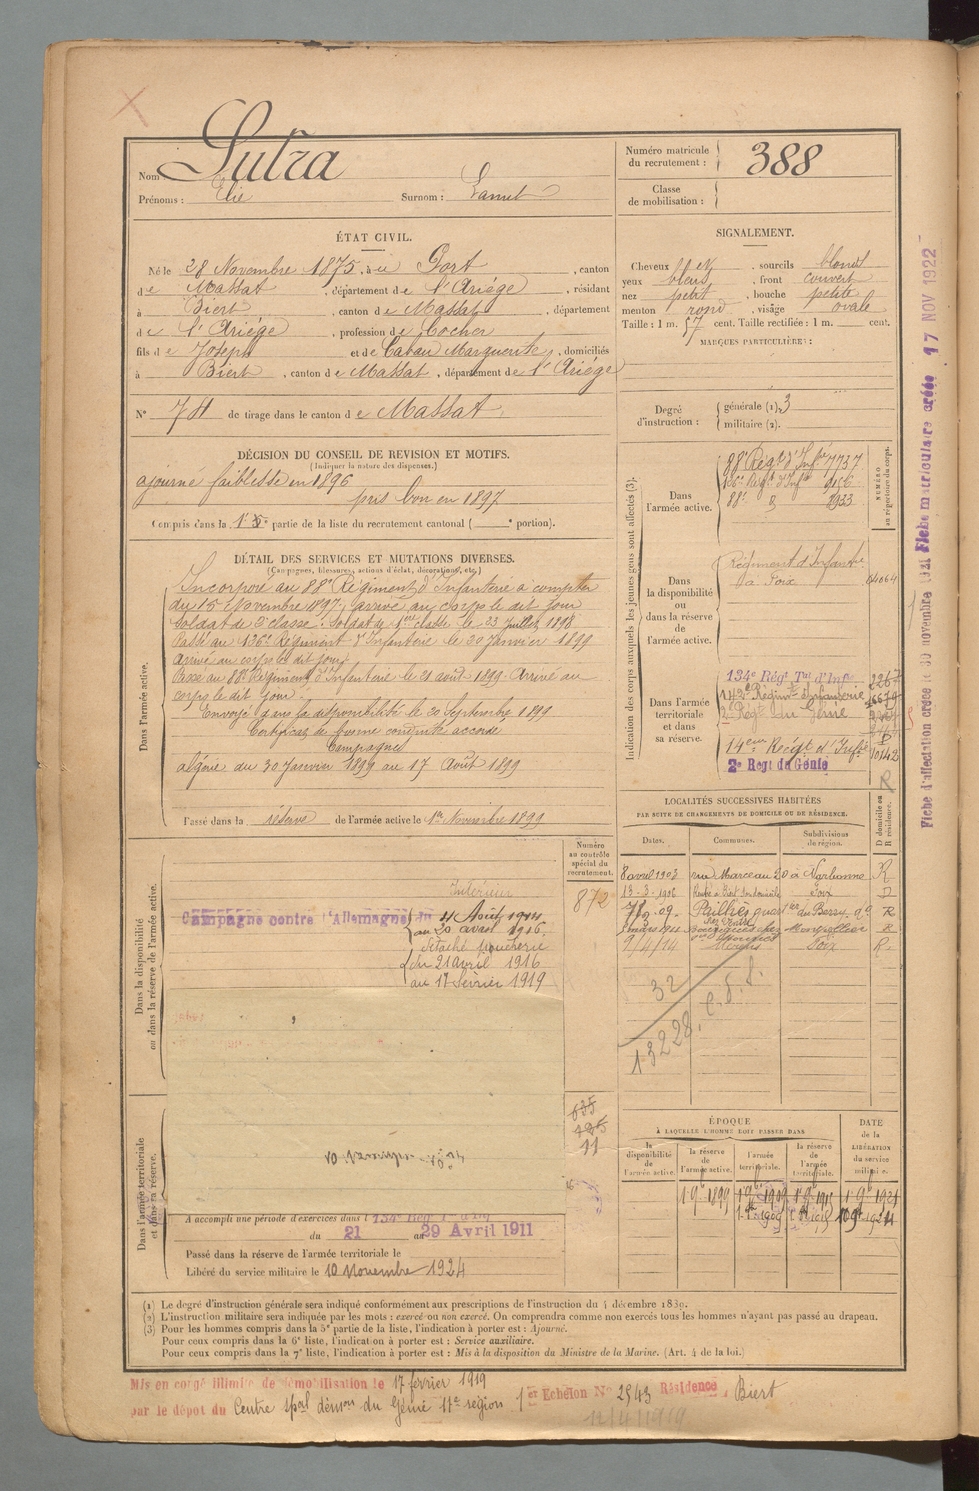 Nom : Sutra
Prénoms : Elie Surnom :
Numéro matricule du recrutement : 388
Classe de mobilisation :
ÉTAT CIVIL.
Né le 28 Novembre 1875, à u Port, canton
de Massat, département de l'Ariége, résidant
à Biert, canton de Massat, département
de l'Ariége, profession de Cocher
fils de Joseph et de Marguerite, domiciliés
à Biert, canton de Massat, département de l'Ariége
N° 74 de tirage dans le canton de Massat
SIGNALEMENT.
Cheveux sourcils blonds
yeux bleus, front couvert
nez petit, bouche petite
menton rond, visage ovale
Taille : 1 m. 57 cent. Taille rectifiée : 1 m. cent.
MARQUES PARTICULIÈRES :
Degré d'instruction : générale (1). 3
militaire (2).
DÉCISION DU CONSEIL DE REVISION ET MOTIFS.
(Indiquer la nature des dispenses.)
ajourné faiblesse en 1896
pris bon en 1897
Compris dans la partie de la liste du recrutement cantonal ( e portion).
DÉTAIL DES SERVICES ET MUTATIONS DIVERSES.
(Campagnes, blessures, actions d'éclat, décorations, etc.)
Dans l'armée active.
Incorporé au 88e Régiment d'Infanterie à compter
du 15 Novembre 1897, arrivé au corps le dit jour
Soldat de 2e classe. Soldat de 1ère classe le 23 Juillet 1898
Passé au 136e Régiment d'Infanterie le 20 Janvier 1899
Arrivé au corps le dit jour
Passé au 88e Régiment d'Infanterie le 21 août 1899. Arrivé au
corps le dit jour.
Envoyé dans la disponibilité le 20 Septembre 1899
Certificat de bonne conduite accordé
Campagnes
algérie du 30 Janvier 1899 au 17 Août 1899
Passé dans la réserve de l'armée active le 1er Novembre 1899
Indication des corps auxquels les jeunes gens sont affectés (3).
NUMÉRO au répertoire du corps.
Dans l'armée active.
88e Régt d'Infie 7737
136e Régt d'Infie 9156
88e
Dans la disponibilité ou dans la réserve de l'armée active.
Régiment d'Infanterie
de Foix
Dans l'armée territoriale et dans sa réserve.
134e Régt Tal d'Infie
142e Régiment d'Infanterie
2e Régt du Génie
14eme Régt d'Infie 10142
2e Regt du Génie
R
LOCALITÉS SUCCESSIVES HABITÉES
PAR SUITE DE CHANGEMENTS DE DOMICILE OU DE RÉSIDENCE.
Dates. Communes. Subdivisions de région. D domicile ou R résidence.
8 avril 1903 rue Marceau 20 à Narbonne R
13-3-1906 Foix
Pailhès
Montpellier R
9/4/14 Foix R
32
13228. C. S. S.
Numéro au contrôle spécial du recrutement.
872
Dans la disponibilité ou dans la réserve de l'armée active.
Intérieur
Campagne contre l'Allemagne du 4 Août 1914
au 20 avril 1916
Détaché
du 21 avril 1916
au 17 février 1919
635
425
11
Dans l'armée territoriale et dans sa réserve.
A accompli une période d'exercices dans l 134e Régt
du 21 au 29 Avril 1911
Passé dans la réserve de l'armée territoriale le
Libéré du service militaire le 10 Novembre 1924
ÉPOQUE
À LAQUELLE L'HOMME DOIT PASSER DANS
la disponibilité de l'armée active. la réserve de l'armée active. l'armée territoriale. la réserve de l'armée territoriale. DATE de la LIBÉRATION du service militaire.
1 9e 1899 1 9e 1909 1 9e 1915 1 9e 1921
(1) Le degré d'instruction générale sera indiqué conformément aux prescriptions de l'instruction du 4 décembre 1889.
(2) L'instruction militaire sera indiquée par les mots : exercé ou non exercé. On comprendra comme non exercés tous les hommes n'ayant pas passé au drapeau.
(3) Pour les hommes compris dans la 5e partie de la liste, l'indication à porter est : Ajourné.
Pour ceux compris dans la 6e liste, l'indication à porter est : Service auxiliaire.
Pour ceux compris dans la 7e liste, l'indication à porter est : Mis à la disposition du Ministre de la Marine. (Art. 4 de la loi.)
Mis en congé illimité de démobilisation le 17 février 1919 1er Echelon N° 2543 Résidence Biert
par le dépot du Centre spal démon du Génie 17e région
12/4/1919
Fiche d'affectation créée le 30 novembre 1921 Fiche matriculaire créée 17 NOV 1922